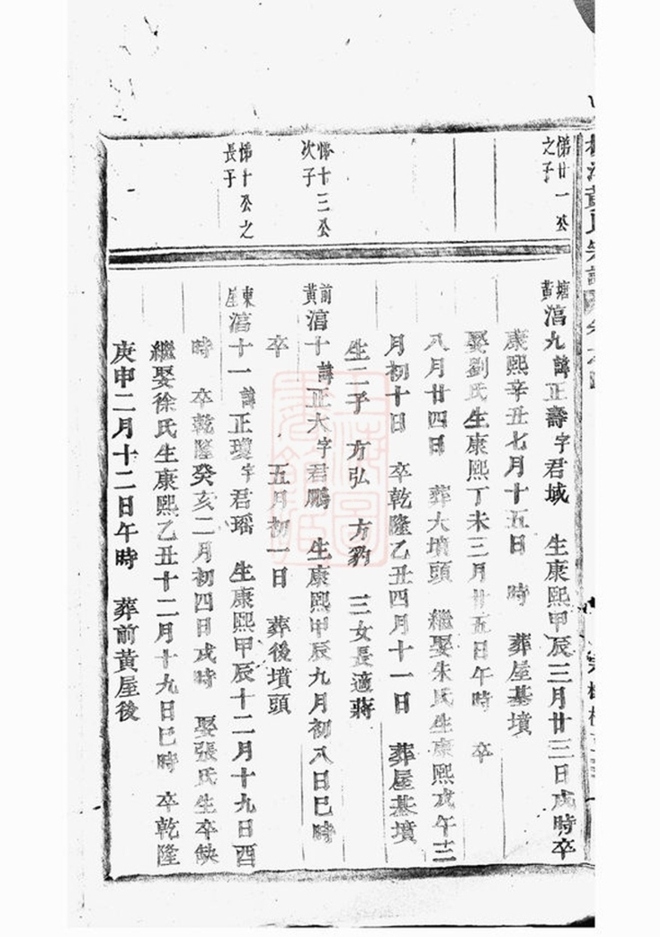 悌廿一公
之子
塘黃 滈九 諱正壽字君域 生康熙甲辰三月廿三日戌時卒
康熙辛丑七月十五日 時 葬屋基墳
娶劉氏生康熙丁未三月廿五日午時 卒
八月廿四日 葬大墳頭 繼娶朱氏生康熙戊午十二
月初十日 卒乾隆乙丑四月十一日 葬屋基墳
生二子 方弘 方豹 三女長適蔣
悌十三公
次子
前黃 滈十 諱正大字君鵬 生康熙甲辰九月初八日巳時
卒 五月初一日 葬後墳頭
悌十公之
長子
東 滈十一 諱正瓊字君瑶 生康熙甲辰十二月十九日酉
時 卒乾隆癸亥二月初四日戌時 娶張氏生卒缺
繼娶徐氏生康熙乙丑十二月十九日巳時 卒乾隆
庚申二月十二日午時 葬前黃屋後